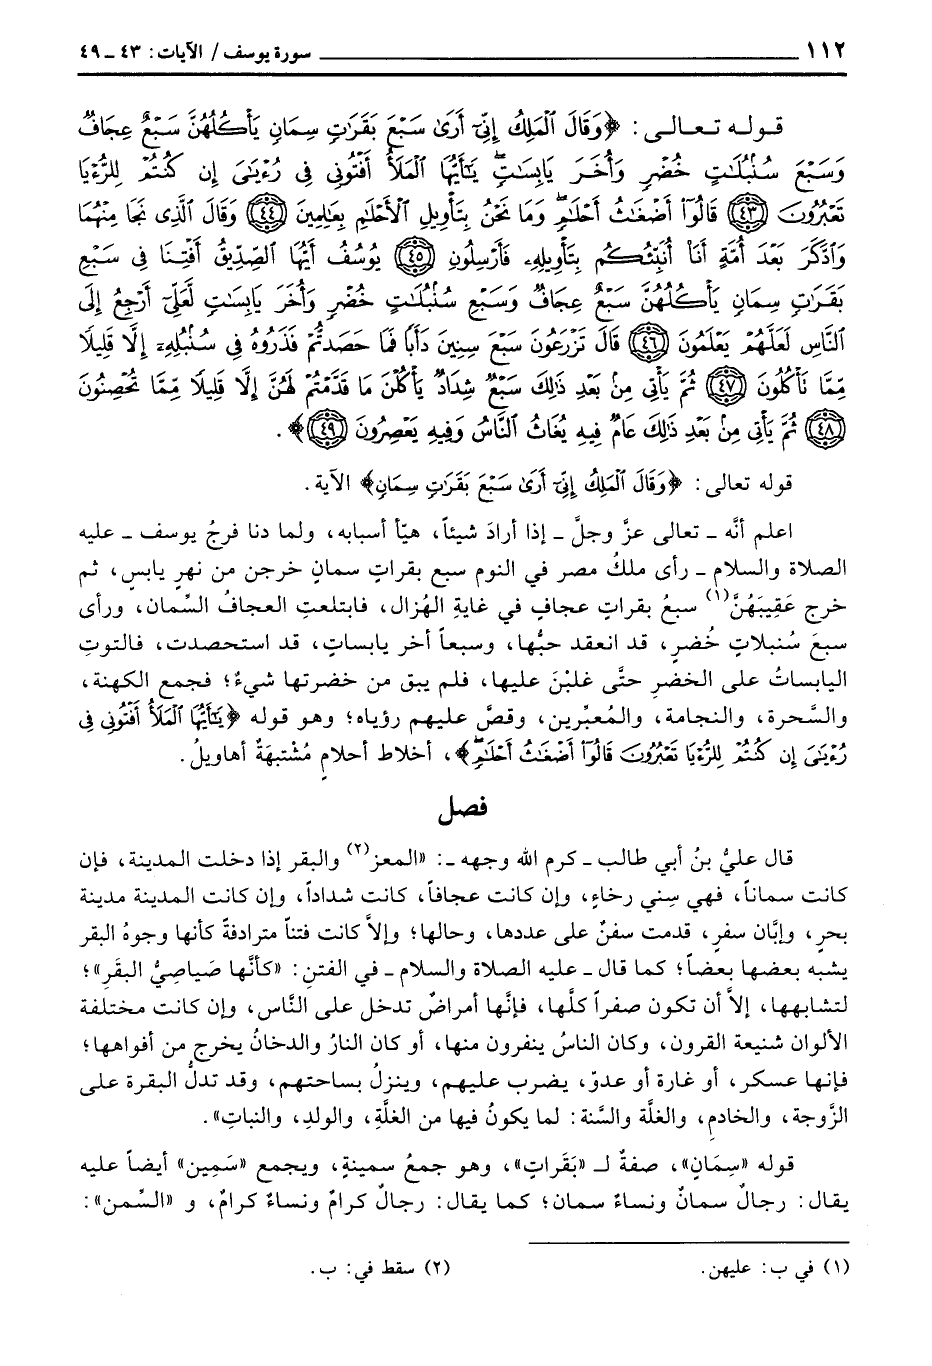 ١١٢ ــــــــــ سورة يوسف / الآيات: ٤٣ ـ ٤٩
قوله تعالى: ﴿وَقَالَ ٱلْمَلِكُ إِنِّىٓ أَرَىٰ سَبْعَ بَقَرَٰتٍ سِمَانٍ يَأْكُلُهُنَّ سَبْعٌ عِجَافٌ
وَسَبْعَ سُنۢبُلَٰتٍ خُضْرٍ وَأُخَرَ يَابِسَٰتٍۖ يَٰٓأَيُّهَا ٱلْمَلَأُ أَفْتُونِى فِى رُءْيَٰىَ إِن كُنتُمْ لِلرُّءْيَا
تَعْبُرُونَ ﴿٤٣﴾ قَالُوٓا۟ أَضْغَٰثُ أَحْلَٰمٍۖ وَمَا نَحْنُ بِتَأْوِيلِ ٱلْأَحْلَٰمِ بِعَٰلِمِينَ ﴿٤٤﴾ وَقَالَ ٱلَّذِى نَجَا مِنْهُمَا
وَٱدَّكَرَ بَعْدَ أُمَّةٍ أَنَا۠ أُنَبِّئُكُم بِتَأْوِيلِهِۦ فَأَرْسِلُونِ ﴿٤٥﴾ يُوسُفُ أَيُّهَا ٱلصِّدِّيقُ أَفْتِنَا فِى سَبْعِ
بَقَرَٰتٍ سِمَانٍ يَأْكُلُهُنَّ سَبْعٌ عِجَافٌ وَسَبْعِ سُنۢبُلَٰتٍ خُضْرٍ وَأُخَرَ يَابِسَٰتٍ لَّعَلِّىٓ أَرْجِعُ إِلَى
ٱلنَّاسِ لَعَلَّهُمْ يَعْلَمُونَ ﴿٤٦﴾ قَالَ تَزْرَعُونَ سَبْعَ سِنِينَ دَأَبًا فَمَا حَصَدتُّمْ فَذَرُوهُ فِى سُنۢبُلِهِۦٓ إِلَّا قَلِيلًا
مِّمَّا تَأْكُلُونَ ﴿٤٧﴾ ثُمَّ يَأْتِى مِنۢ بَعْدِ ذَٰلِكَ سَبْعٌ شِدَادٌ يَأْكُلْنَ مَا قَدَّمْتُمْ لَهُنَّ إِلَّا قَلِيلًا مِّمَّا تُحْصِنُونَ
﴿٤٨﴾ ثُمَّ يَأْتِى مِنۢ بَعْدِ ذَٰلِكَ عَامٌ فِيهِ يُغَاثُ ٱلنَّاسُ وَفِيهِ يَعْصِرُونَ ﴿٤٩﴾﴾.
قوله تعالى: ﴿وَقَالَ ٱلْمَلِكُ إِنِّىٓ أَرَىٰ سَبْعَ بَقَرَٰتٍ سِمَانٍ﴾ الآية.
اعلم أنَّه ـ تعالى عزَّ وجلَّ ـ إذا أرادَ شيئاً، هيّأ أسبابه، ولما دنا فرجُ يوسف ـ عليه
الصلاة والسلام ـ رأى ملكُ مصر في النوم سبع بقراتٍ سمانٍ خرجن من نهرٍ يابسٍ، ثم
خرج عَقِيبَهُنَّ(١) سبعُ بقراتٍ عجافٍ في غايةِ الهُزال، فابتلعتِ العجافُ السِّمان، ورأى
سبعَ سُنبلاتٍ خُضرٍ، قد انعقد حبُّها، وسبعاً أخر يابساتٍ، قد استحصدت، فالتوتِ
اليابساتُ على الخضرِ حتَّى غلبْنَ عليها، فلم يبق من خضرتها شيءٌ؛ فجمع الكهنة،
والسَّحرة، والنجامة، والمُعبِّرين، وقصَّ عليهم رؤياه؛ وهو قوله ﴿يَٰٓأَيُّهَا ٱلْمَلَأُ أَفْتُونِى فِى
رُءْيَٰىَ إِن كُنتُمْ لِلرُّءْيَا تَعْبُرُونَ قَالُوٓا۟ أَضْغَٰثُ أَحْلَٰمٍۖ﴾، أخلاط أحلامٍ مُشْتبهَةٌ أهاويلُ.
فصل
قال عليُّ بنُ أبي طالب ـ كرم الله وجهه ـ: «المعز(٢) والبقر إذا دخلت المدينة، فإن
كانت سماناً، فهي سِني رخاءٍ، وإن كانت عجافاً، كانت شداداً، وإن كانت المدينة مدينة
بحرٍ، وإبَّان سفرٍ، قدمت سفنٌ على عددها، وحالها؛ وإلاَّ كانت فتناً مترادفةً كأنها وجوهُ البقر
يشبه بعضها بعضاً؛ كما قال ـ عليه الصلاة والسلام ـ في الفتنِ: «كأنَّها صَياصِيُّ البقَرِ»؛
لتشابهها، إلاَّ أن تكون صفراً كلَّها، فإنَّها أمراضٌ تدخل على النَّاس، وإن كانت مختلفة
الألوان شنيعة القرون، وكان الناسُ ينفرون منها، أو كان النارُ والدخانُ يخرج من أفواهها؛
فإنها عسكر، أو غارة أو عدوّ، يضرب عليهم، وينزلُ بساحتهم، وقد تدلُّ البقرة على
الزَّوجة، والخادمِ، والغلَّة والسَّنة: لما يكونُ فيها من الغلَّةِ، والولدِ، والنباتِ».
قوله «سِمَانٍ»، صفةٌ لـ «بَقَراتٍ»، وهو جمعُ سمينةٍ، ويجمع «سَمِين» أيضاً عليه
يقال: رجالٌ سمانٌ ونساءٌ سمان؛ كما يقال: رجالٌ كرامٌ ونساءٌ كرامٌ، و «السِّمن»:
(١) في ب: عليهن.
(٢) سقط في: ب.